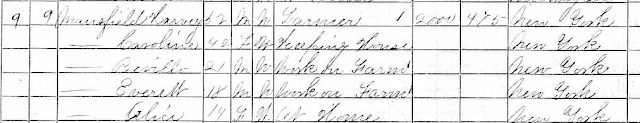 9 9 Mansfield Harvey 52 M W Farmer 1 2000 475 New York
— Caroline 42 F W Keeping House New York
— 21 M W Work on Farm New York
— Everett 18 M W Work on Farm New York
— Alice 14 F W At Home New York